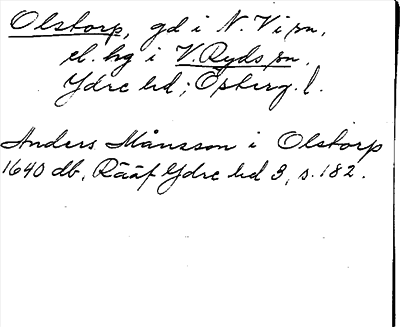 Olstorp, gd i N. Vi sn,
el. hg i V. Ryds sn.
Ydre hd; Östergl.
Anders Månsson i Olstorp
1640 db, Rääf Ydre hd 3, s. 182.